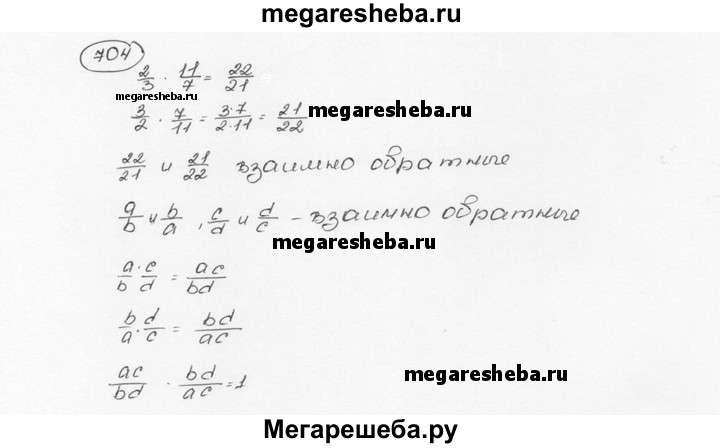 megaresheba.ru
704
2/3 · 11/7 = 22/21
megaresheba.ru
3/2 · 7/11 = 3·7/2·11 = 21/22
megaresheba.ru
22/21 и 21/22 взаимно обратные
a/b и b/a , c/d и d/c – взаимно обратные
megaresheba.ru
a/b · c/d = ac/bd
b/a · d/c = bd/ac
megaresheba.ru
ac/bd · bd/ac = 1
Мегарешеба.ру